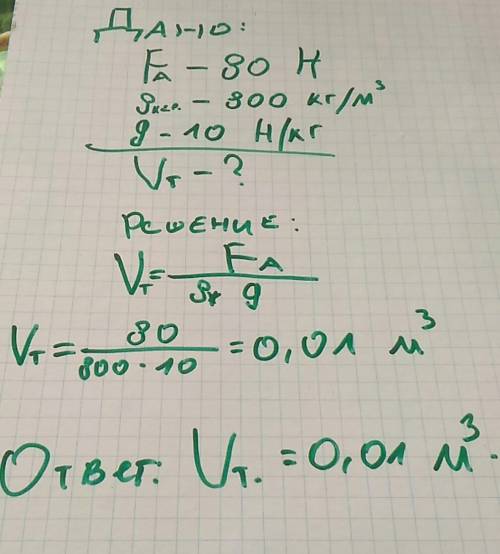 Дано:
FА – 80 Н
ρкер. – 800 кг/м³
g – 10 Н/кг
Vт – ?
Решение:
Vт = FА / ρж g
Vт = 80 / 800 · 10 = 0,01 м³
Ответ: Vт. = 0,01 м³.